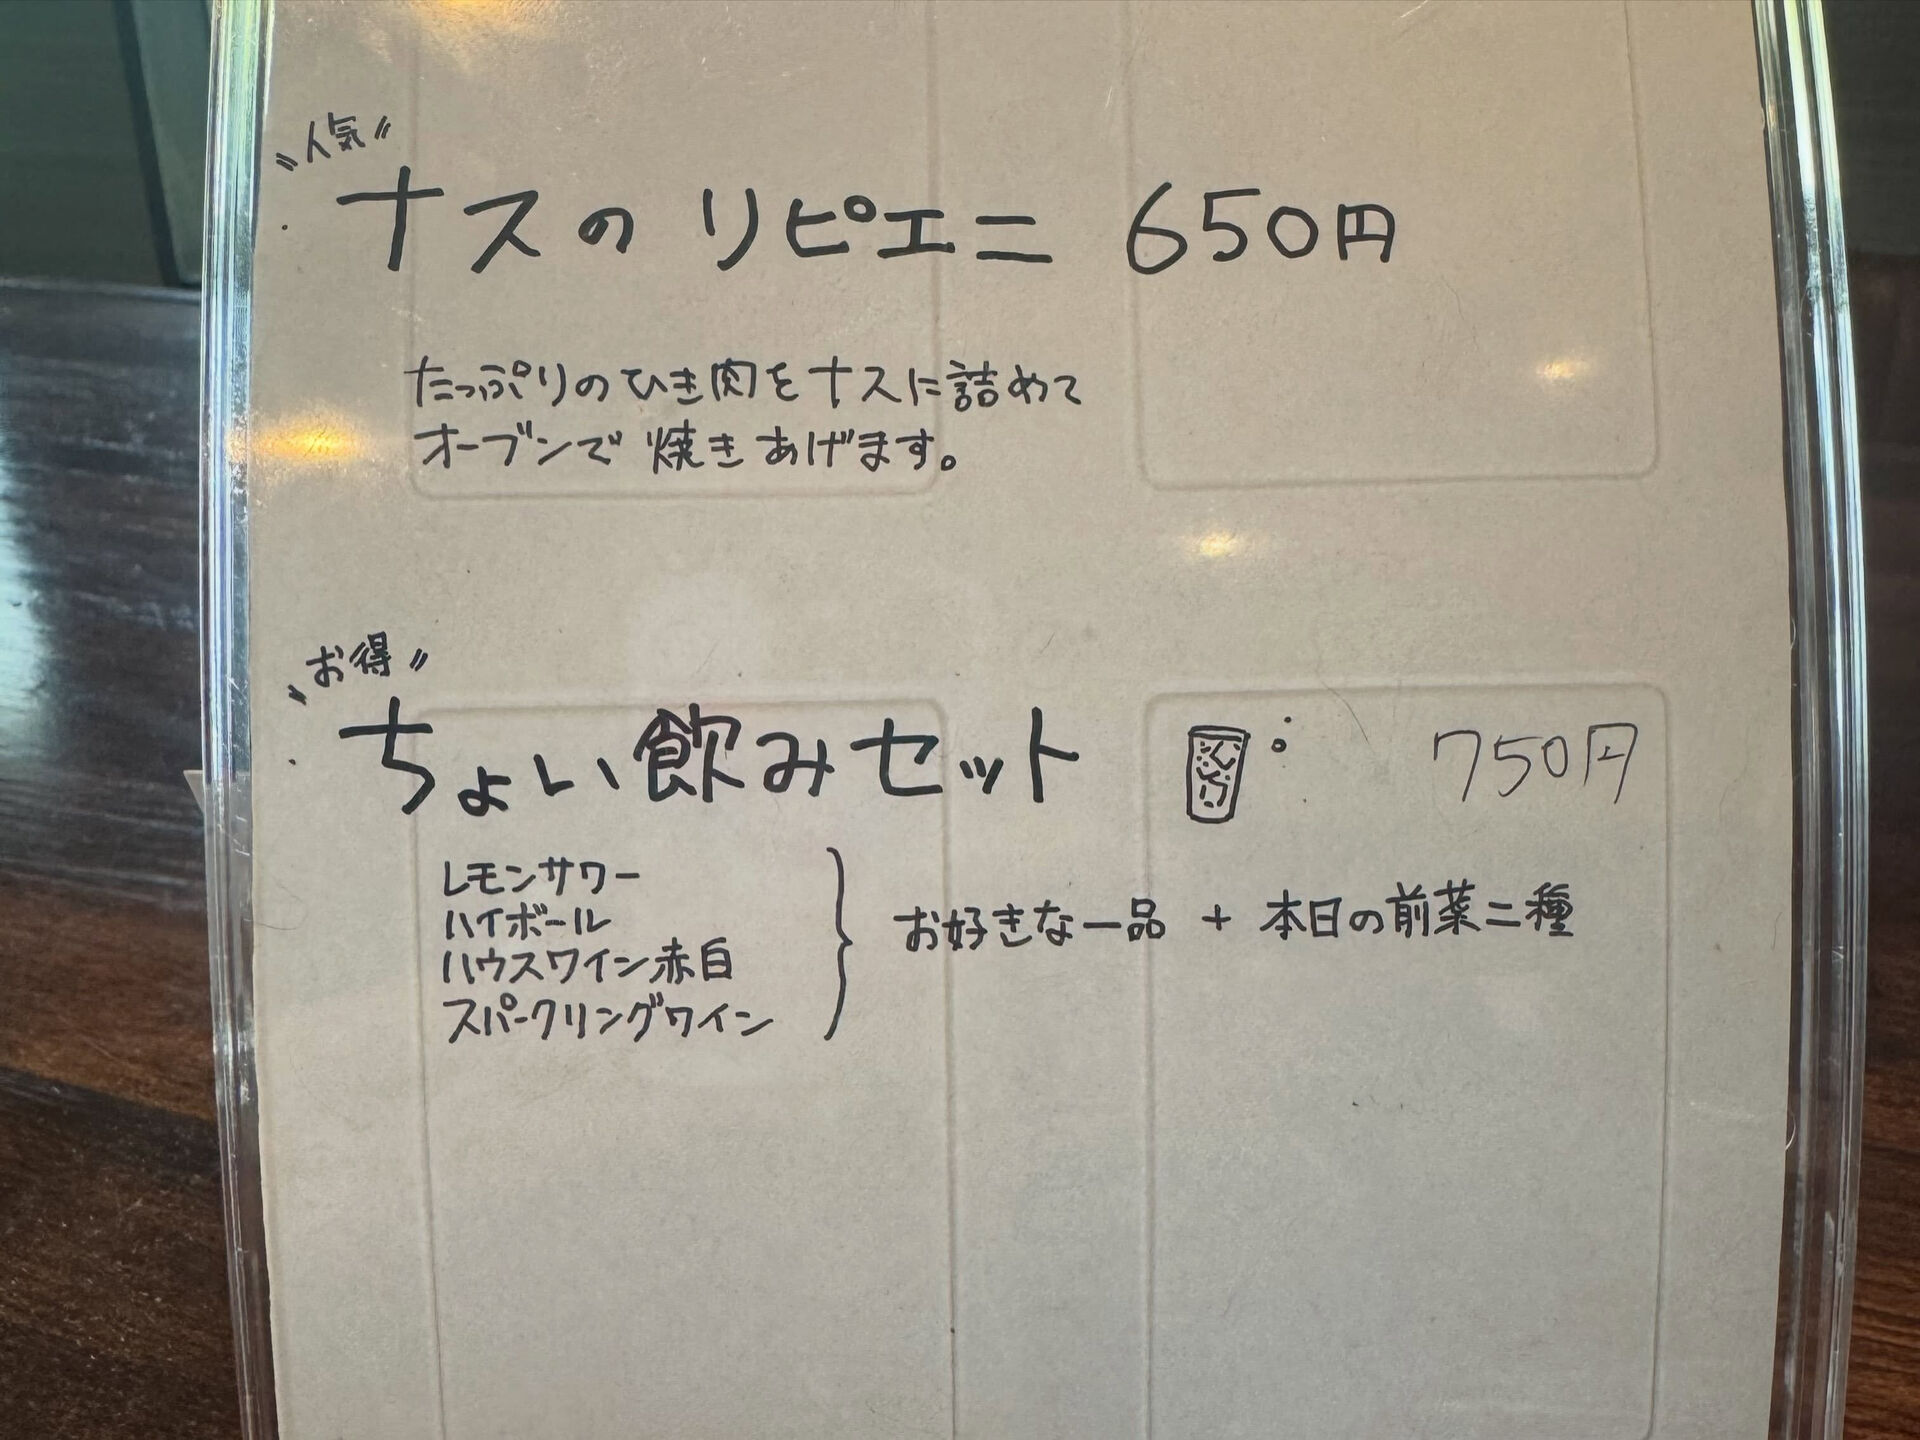 人気
・ナスのリピエニ 650円
たっぷりのひき肉をナスに詰めて
オーブンで焼きあげます。
お得
・ちょい飲みセット 750円
レモンサワー
ハイボール
ハウスワイン赤白
スパークリングワイン
お好きな一品 + 本日の前菜二種